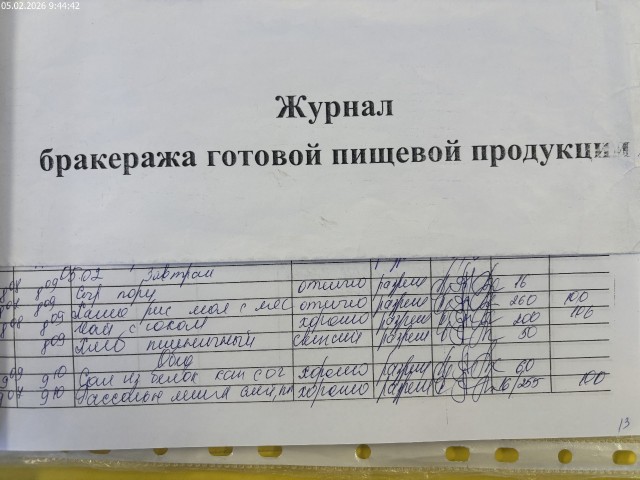 05.02.2026 9:44:42
Журнал
бракеража готовой пищевой продукции
05.02 Завтрак
8 08 8 09 Сыр порц отлично разреш 16
8 09 Каша рис мол с мас отлично разреш 260 100
8 08 8 09 Чай с соком хорошо разреш 200 100
8 09 Хлеб пшеничный разреш 50
Обед
9 09 9 10 Сал из белок кап с ог хорошо разреш 60
9 10 Рассольн хорошо разреш 16/255 100
13